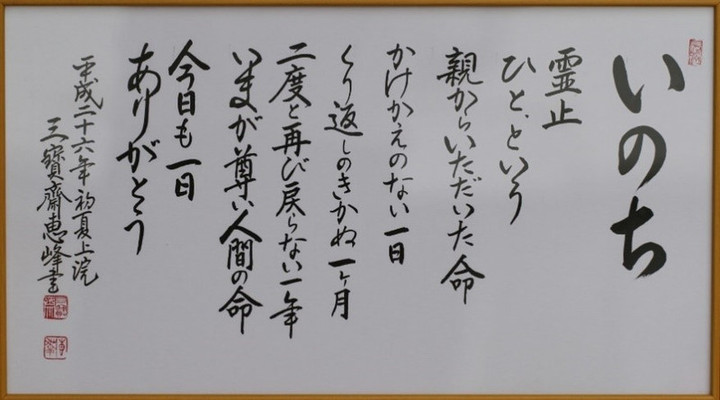 いのち
霊止
ひと、という
親からいただいた命
かけかえのない一日
くり返しのきかぬ一ヶ月
二度と再び戻らない一年
いまが尊い人間の命
今日も一日
ありがとう
平成二十六年初夏上浣
三寳齋恵峰書